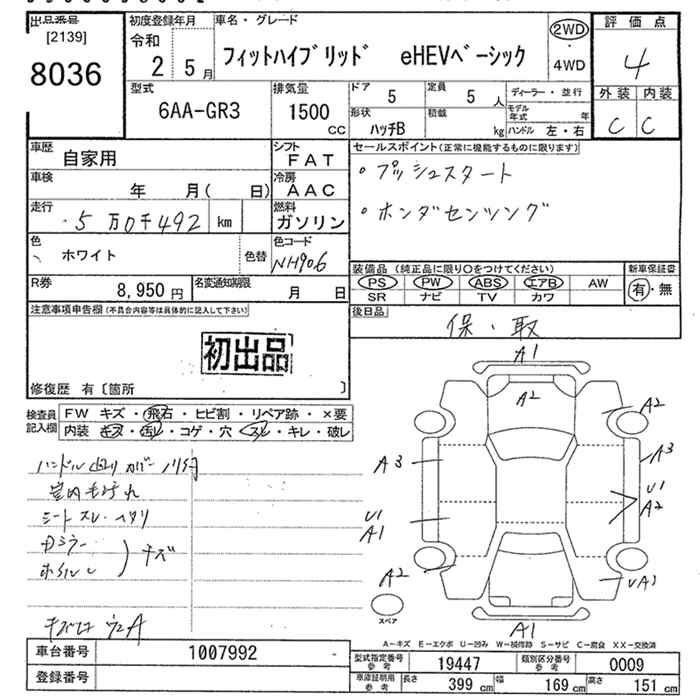 出品番号
[2139]
8036
初度登録年月
令和
2 5月
車名・グレード
フィットハイブリッド eHEVベーシック
2WD
4WD
評価点
4
外装 内装
C C
型式
6AA-GR3
排気量
1500
CC
ドア
5
定員
5人
形状
ハッチB
積載
kg
ディーラー・並行
モデル年式 年
ハンドル 左・右
車歴
自家用
シフト
FAT
車検
年 月( 日)
冷房
AAC
走行
5万0千492 km
燃料
ガソリン
色
ホワイト
色替
色コード
NH906
R券
8,950円
名変通知期限
月 日
セールスポイント(正常に機能するものに限ります)
・プッシュスタート
・ホンダセンシング
装備品(純正品に限り○をつけてください)
PS PW ABS エアB AW
SR ナビ TV カワ
新車保証書
有・無
後日品
保・取
注意事項申告欄(不具合内容等は具体的に記入して下さい)
初出品
修復歴 有〔箇所 〕
検査員記入欄
FW キズ・飛石・ヒビ割・リペア跡・×要
内装 キズ・汚レ・コゲ・穴・スレ・キレ・破レ
室内毛げれ
シートスレ・ヘタリ
ドミラー
ホイール
キズ
A1
A2
A2
A3
A3
U1
A1
U1
A2
A2
UA1
A1
スペア
A-キズ E-エクボ U-凹み W-補修跡 S-サビ C-腐食 XX-交換済
車台番号
1007992
登録番号
型式指定番号
参考
19447
類別区分番号
参考
0009
車庫証明用
参考
長さ
399 cm
幅
169 cm
高さ
151 cm